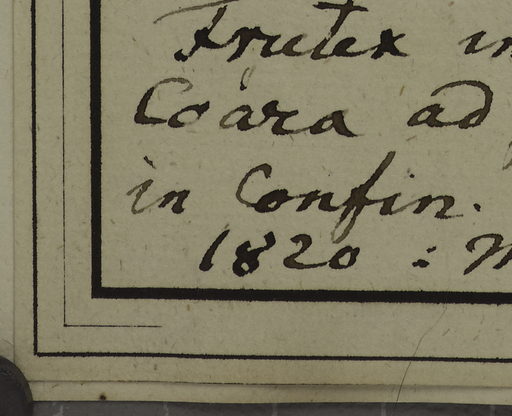 Frutex in
Coára ad
in Confin.
1820 : M